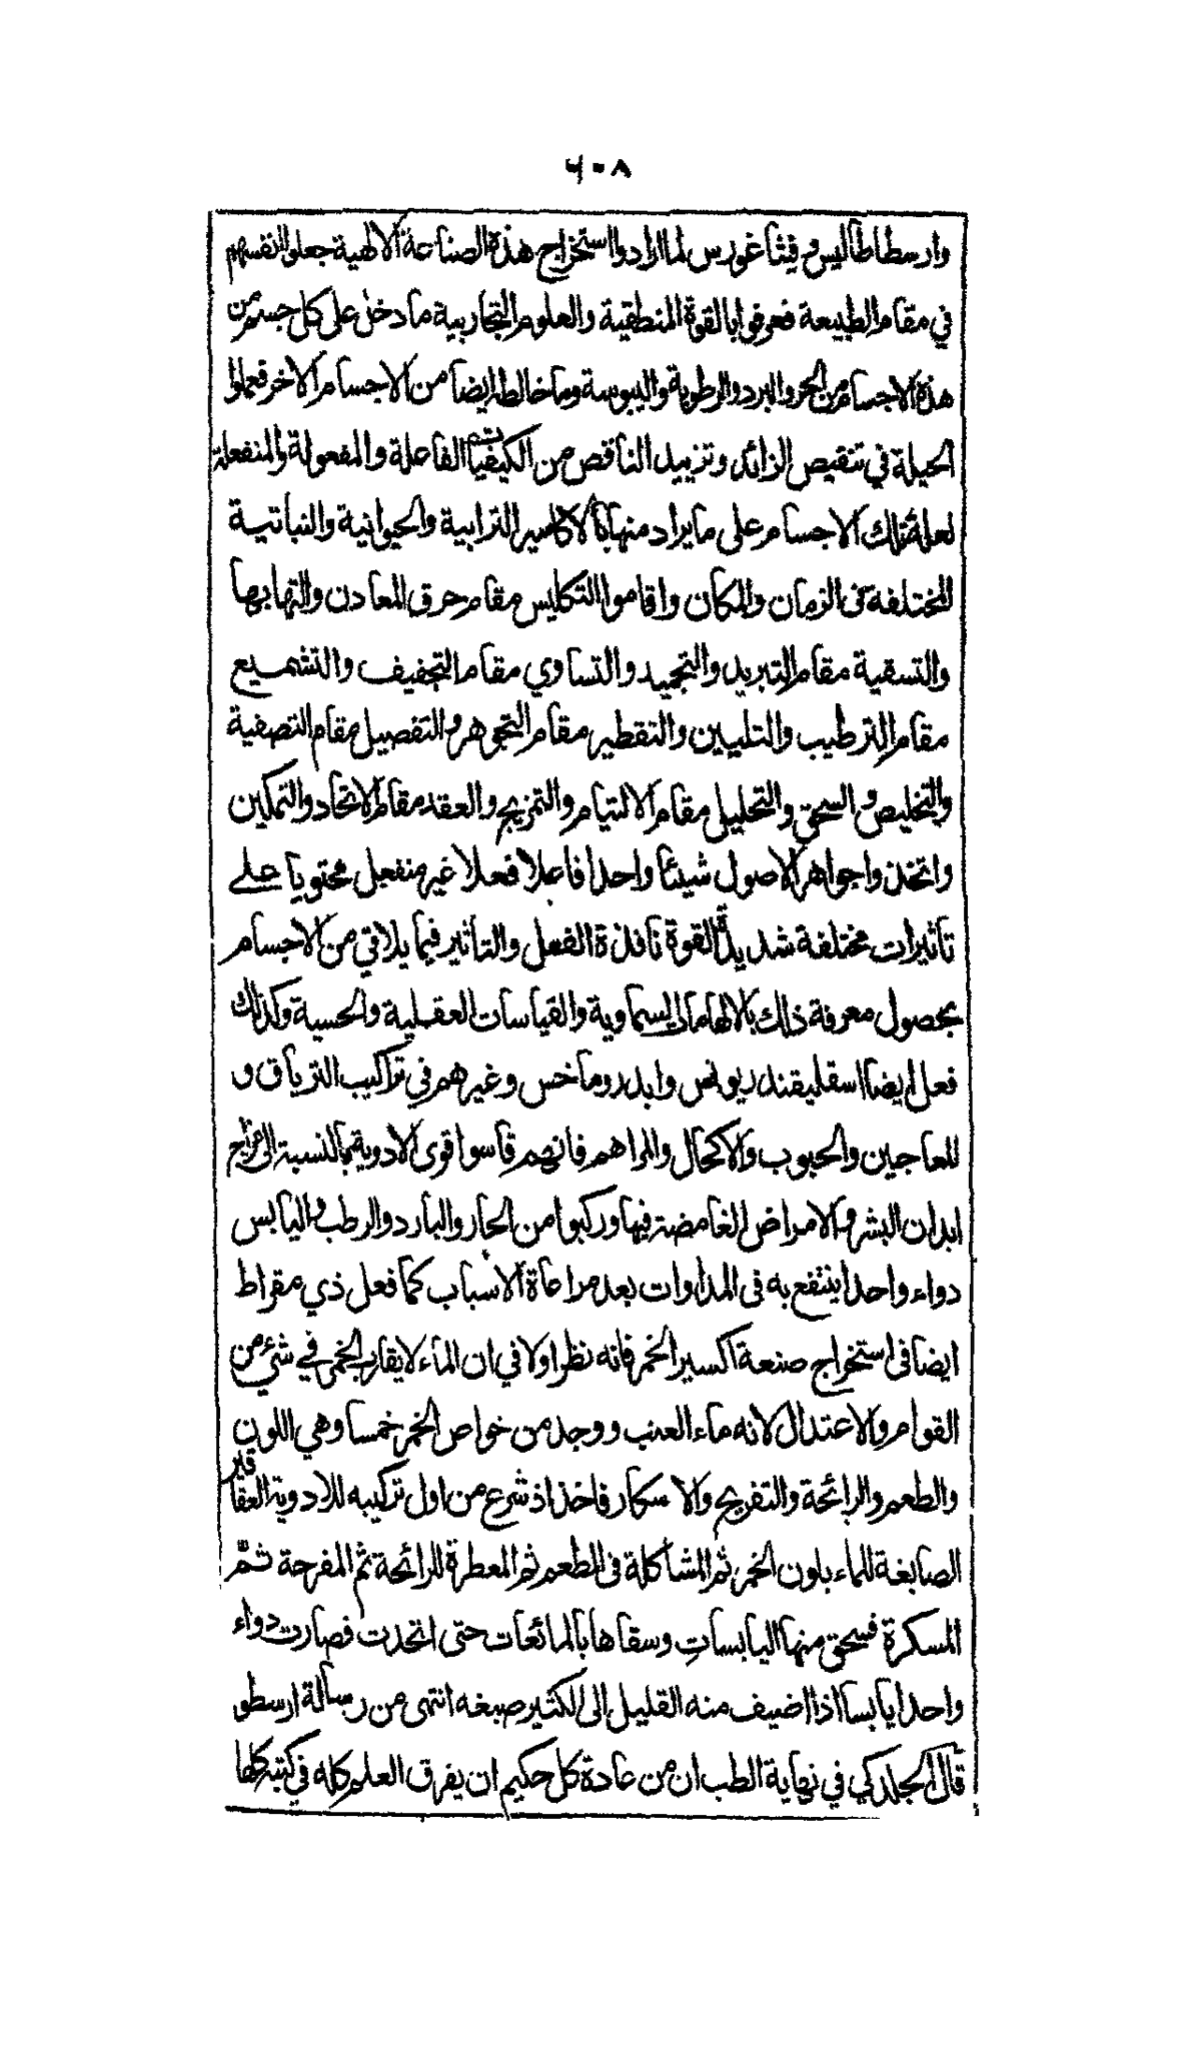 ٦٠٨
وارسطاطاليس وفيثاغورس لما ارادوا استخراج هذه الصناعة الالهية جعلوا انفسهم
في مقام الطبيعة فعرفوا بالقوة المنطقية والعلوم التجاربية ما دخل على كل جسم من
هذه الاجسام من الحر والبرد والرطوبة واليبوسة وما خالطه ايضا من الاجسام الاخر فعملوا
الحيلة في تنقيص الزائد وتزييد الناقص من الكيفيات الفاعلة والمفعولة والمنفعلة
لعلة تلك الاجسام على ما يراد منها بالاكاسير الترابية والحيوانية والنباتية
المختلفة في الزمان والمكان واقاموا التكليس مقام حرق المعادن والتهابها
والتسقية مقام التبريد والتجميد والتساوي مقام التجفيف والتشميع
مقام الترطيب والتليين والتقطير مقام التجوهر والتفصيل مقام التصفية
والتخليص والسحق والتحليل مقام الالتيام والتمزيج والعقد مقام الاتحاد والتمكين
واتخذوا جواهر الاصول شيئا واحدا فاعلا فعلا غير منفعل محتويا على
تاثيرات مختلفة شديدة القوة نافذة الفعل والتاثير فيما يلاقي من الاجسام
بحصول معرفة ذلك بالالهامات السماوية والقياسات العقلية والحسية وكذلك
فعل ايضا اسقليقنديونس وابدروماخس وغيرهم في تراكيب الترياق و
المعاجين والحبوب والاكحال والمراهم فانهم قاسوا قوى الادوية بالنسبة الى مزاج
ابدان البشر والامراض الغامضة فيها وركبوا من الحار والبارد والرطب واليابس
دواء واحدا ينتفع به فى المداوات بعد مراعاة الاسباب كما فعل ذي مقراط
ايضا فى استخراج صنعة اكسير الخمر فانه نظر اولا في ان الماء لا يقارب الخمر في شئ من
القوام والاعتدال لانه ماء العنب ووجد من خواص الخمر خمسا وهي اللون
والطعم والرائحة والتفريح والاسكار فاخذ اذ شرع من اول تركيبه للادوية العقاقير
الصابغة للماء بلون الخمر ثم المشاكلة فى الطعم ثم المعطرة للرائحة ثم المفرحة ثم
المسكرة فسحق منها اليابسات وسقاها بالمائعات حتى اتحدت فصارت دواء
واحدا يابسا اذا اضيف منه القليل الى الكثير صبغه انتهى من رسالة ارسطو
قال الجلدكي في نهاية الطلب ان من عادة كل حكيم ان يفرق العلم كله في كتبه كلها